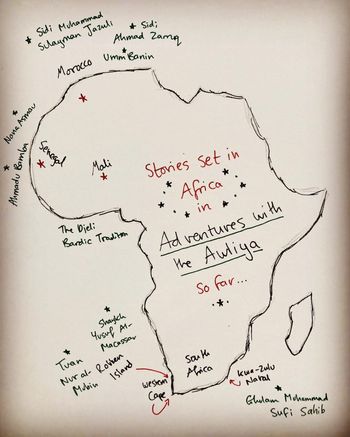 Sidi Muhammad
Sulayman Jazuli
Sidi
Ahmad Zarruq
Umm Banin
Morocco
Nana Asmau
Ahmadu Bamba
Senegal
Mali
The Djeli
Bardic Tradition
Stories set in
Africa
in
Adventures with
the Awliya
So far...
Shaykh
Yusuf Al-
Macassar
Tuan
Nur al-
Mobin
Robben
Island
Western
Cape
South
Africa
Kwa-Zulu
Natal
Ghulam Muhammad
Sufi Sahib